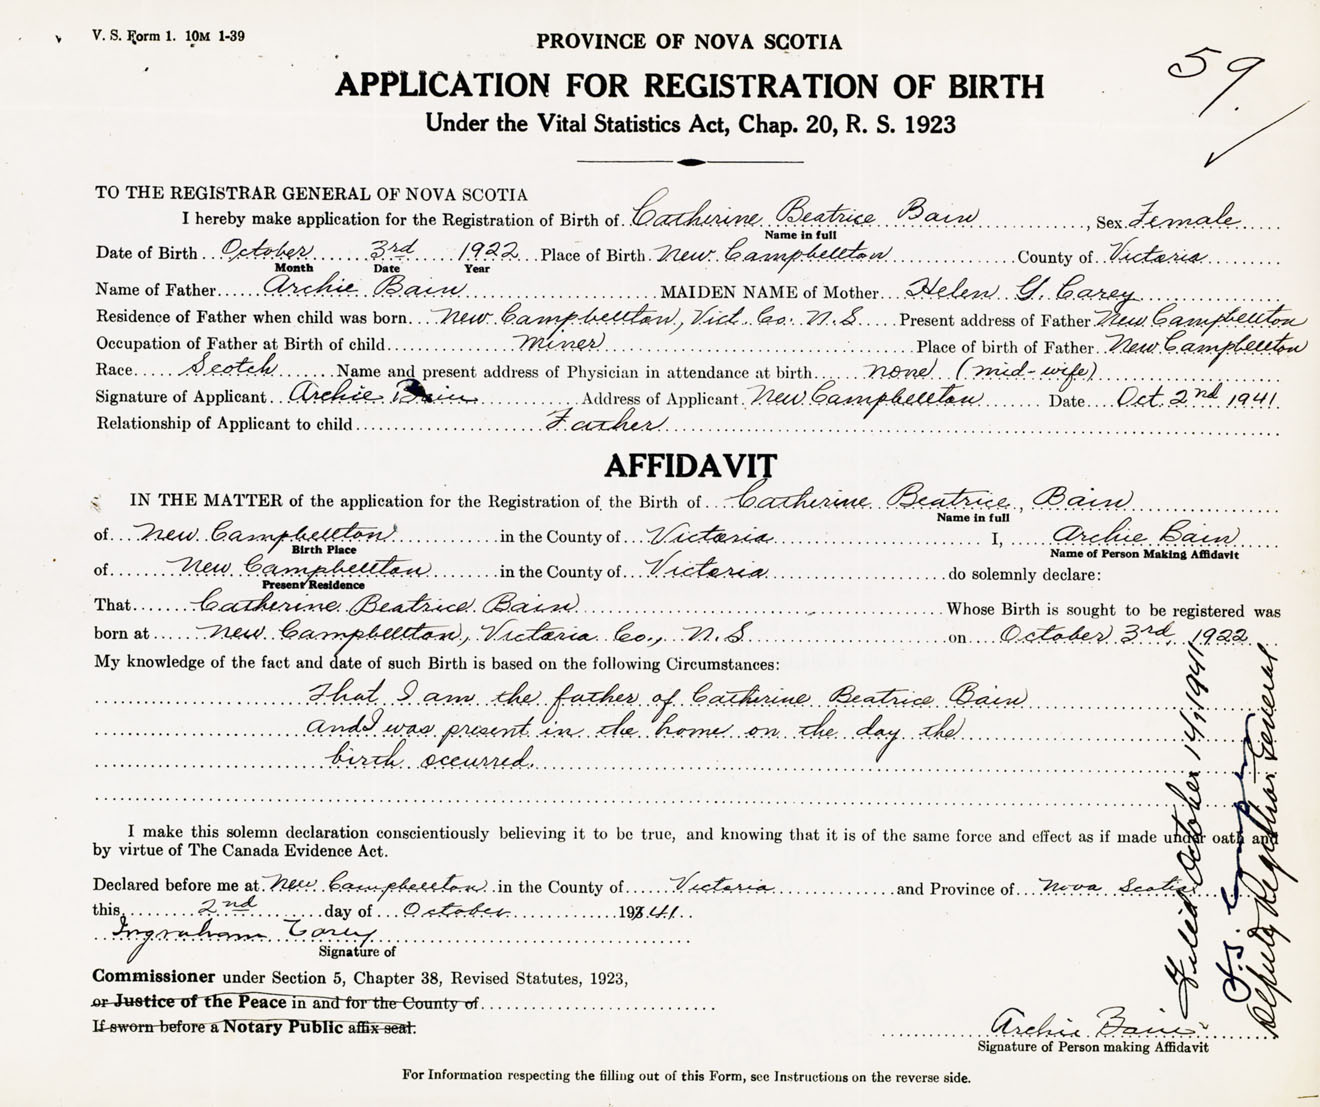 V. S. Form 1. 10M 1-39
59
PROVINCE OF NOVA SCOTIA
APPLICATION FOR REGISTRATION OF BIRTH
Under the Vital Statistics Act, Chap. 20, R. S. 1923
TO THE REGISTRAR GENERAL OF NOVA SCOTIA
I hereby make application for the Registration of Birth of Catherine Beatrice Bain, Sex Female
Name in full
Date of Birth October 3rd 1922 Place of Birth New Campbellton County of Victoria
Month Date Year
Name of Father Archie Bain MAIDEN NAME of Mother Helen G. Carey
Residence of Father when child was born New Campbellton, Vict. Co. N.S. Present address of Father New Campbellton
Occupation of Father at Birth of child Miner Place of birth of Father New Campbellton
Race Scotch Name and present address of Physician in attendance at birth none (mid-wife)
Signature of Applicant Archie Bain Address of Applicant New Campbellton Date Oct. 2nd 1941
Relationship of Applicant to child Father
AFFIDAVIT
IN THE MATTER of the application for the Registration of the Birth of Catherine Beatrice, Bain
Name in full
of New Campbellton in the County of Victoria I, Archie Bain
Birth Place Name of Person Making Affidavit
of New Campbellton in the County of Victoria do solemnly declare:
Present Residence
That Catherine Beatrice Bain Whose Birth is sought to be registered was
born at New Campbellton, Victoria Co., N.S on October 3rd, 1922
My knowledge of the fact and date of such Birth is based on the following Circumstances:
That I am the father of Catherine Beatrice Bain
and I was present in the home on the day the
birth occurred.
I make this solemn declaration conscientiously believing it to be true, and knowing that it is of the same force and effect as if made under oath and
by virtue of The Canada Evidence Act.
Declared before me at New Campbellton in the County of Victoria and Province of Nova Scotia
this 2nd day of October 1941
Ingraham Carey
Signature of
Commissioner under Section 5, Chapter 38, Revised Statutes, 1923,
or Justice of the Peace in and for the County of
If sworn before a Notary Public affix seal.
Archie Bain
Signature of Person making Affidavit
For Information respecting the filling out of this Form, see Instructions on the reverse side.
Filed October 14, 1941
Deputy Registrar General